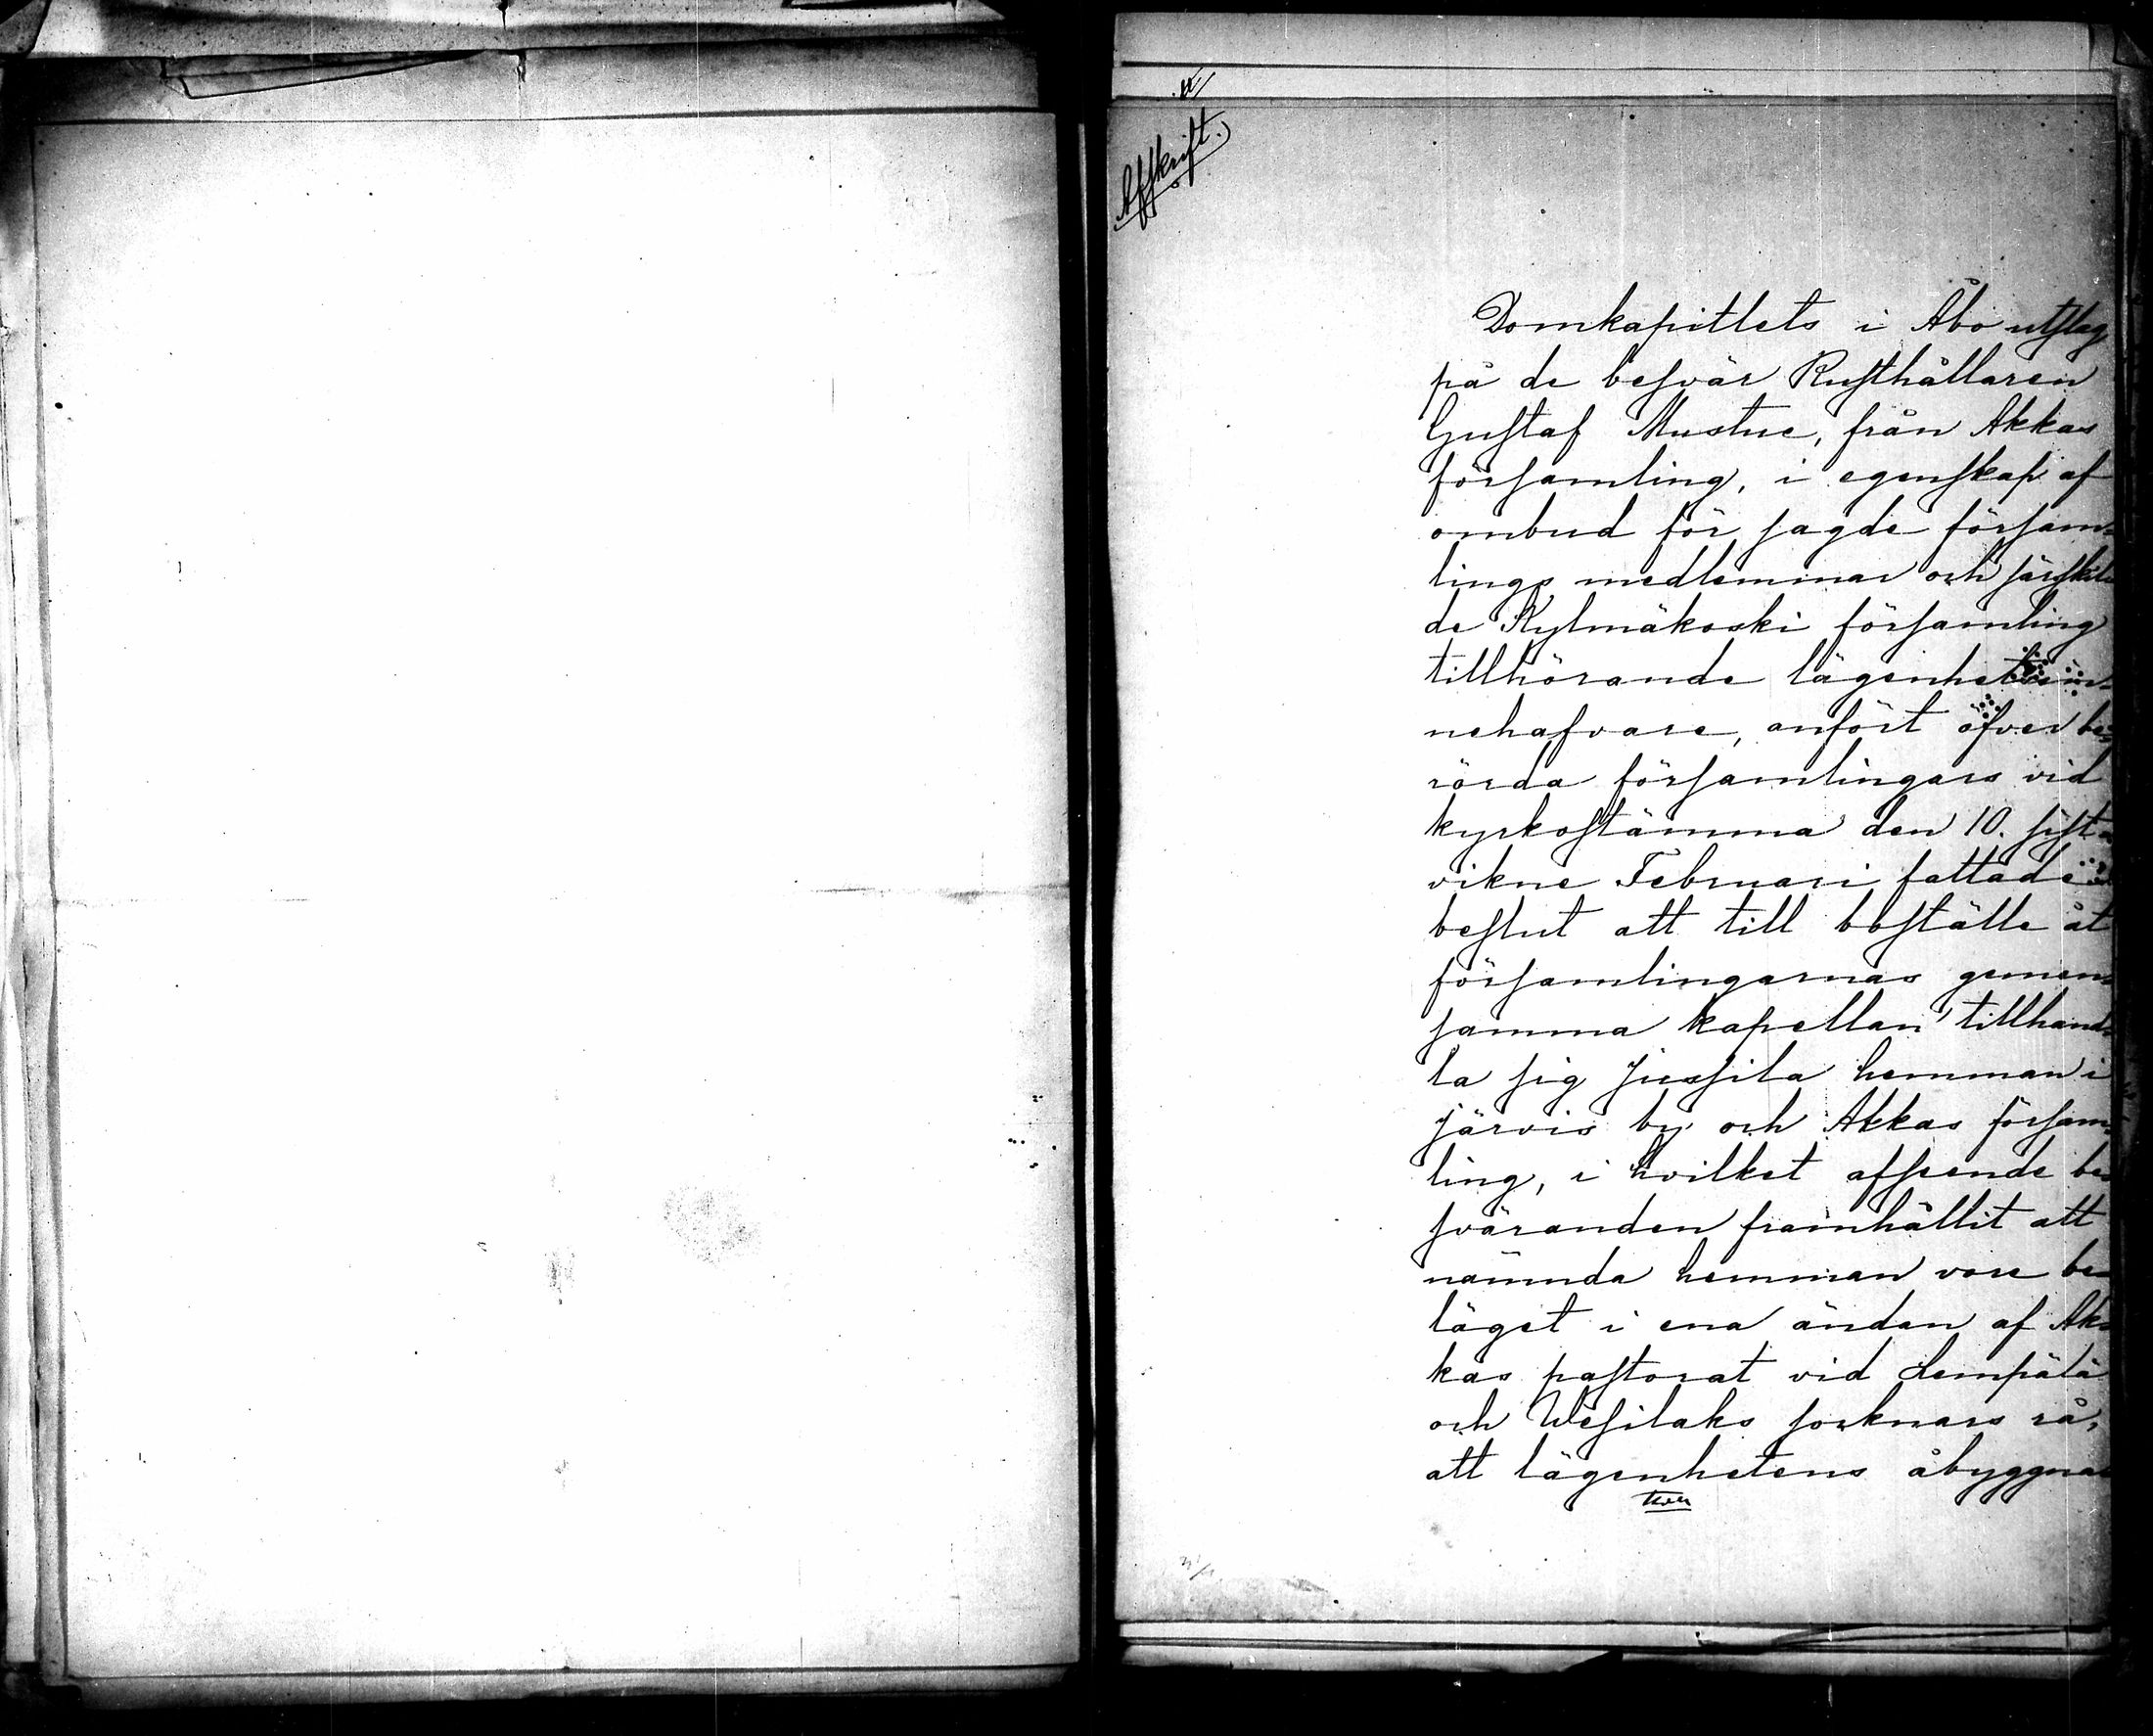 Affskrift.
Domkapitlets i Åbo utslag
på de besvär Rusthållaren
Gustaf Mustue, från Akkas
församling, i egenskap af
ombud för sagde försam-
lings medlemmar och särskil-
de Kylmäkoski församling
tillhörande lägenhets in-
nehafvare, anfört öfver be-
rörda församlingars vid
kyrkostämma den 10. sist-
vikne Februari fattade
beslut att till boställe åt
församlingarnas gemen-
samma kapellan tillhand-
la sig Jussila hemman i
Järvis by och Akkas försam-
ling, i hvilket afseende be-
sväranden framhållit att
nämnda hemman vore be-
läget i ena ändan af Ak-
kas pastorat vid Lempälä
och Wesilaks socknars rå,
att lägenhetens åbyggna-